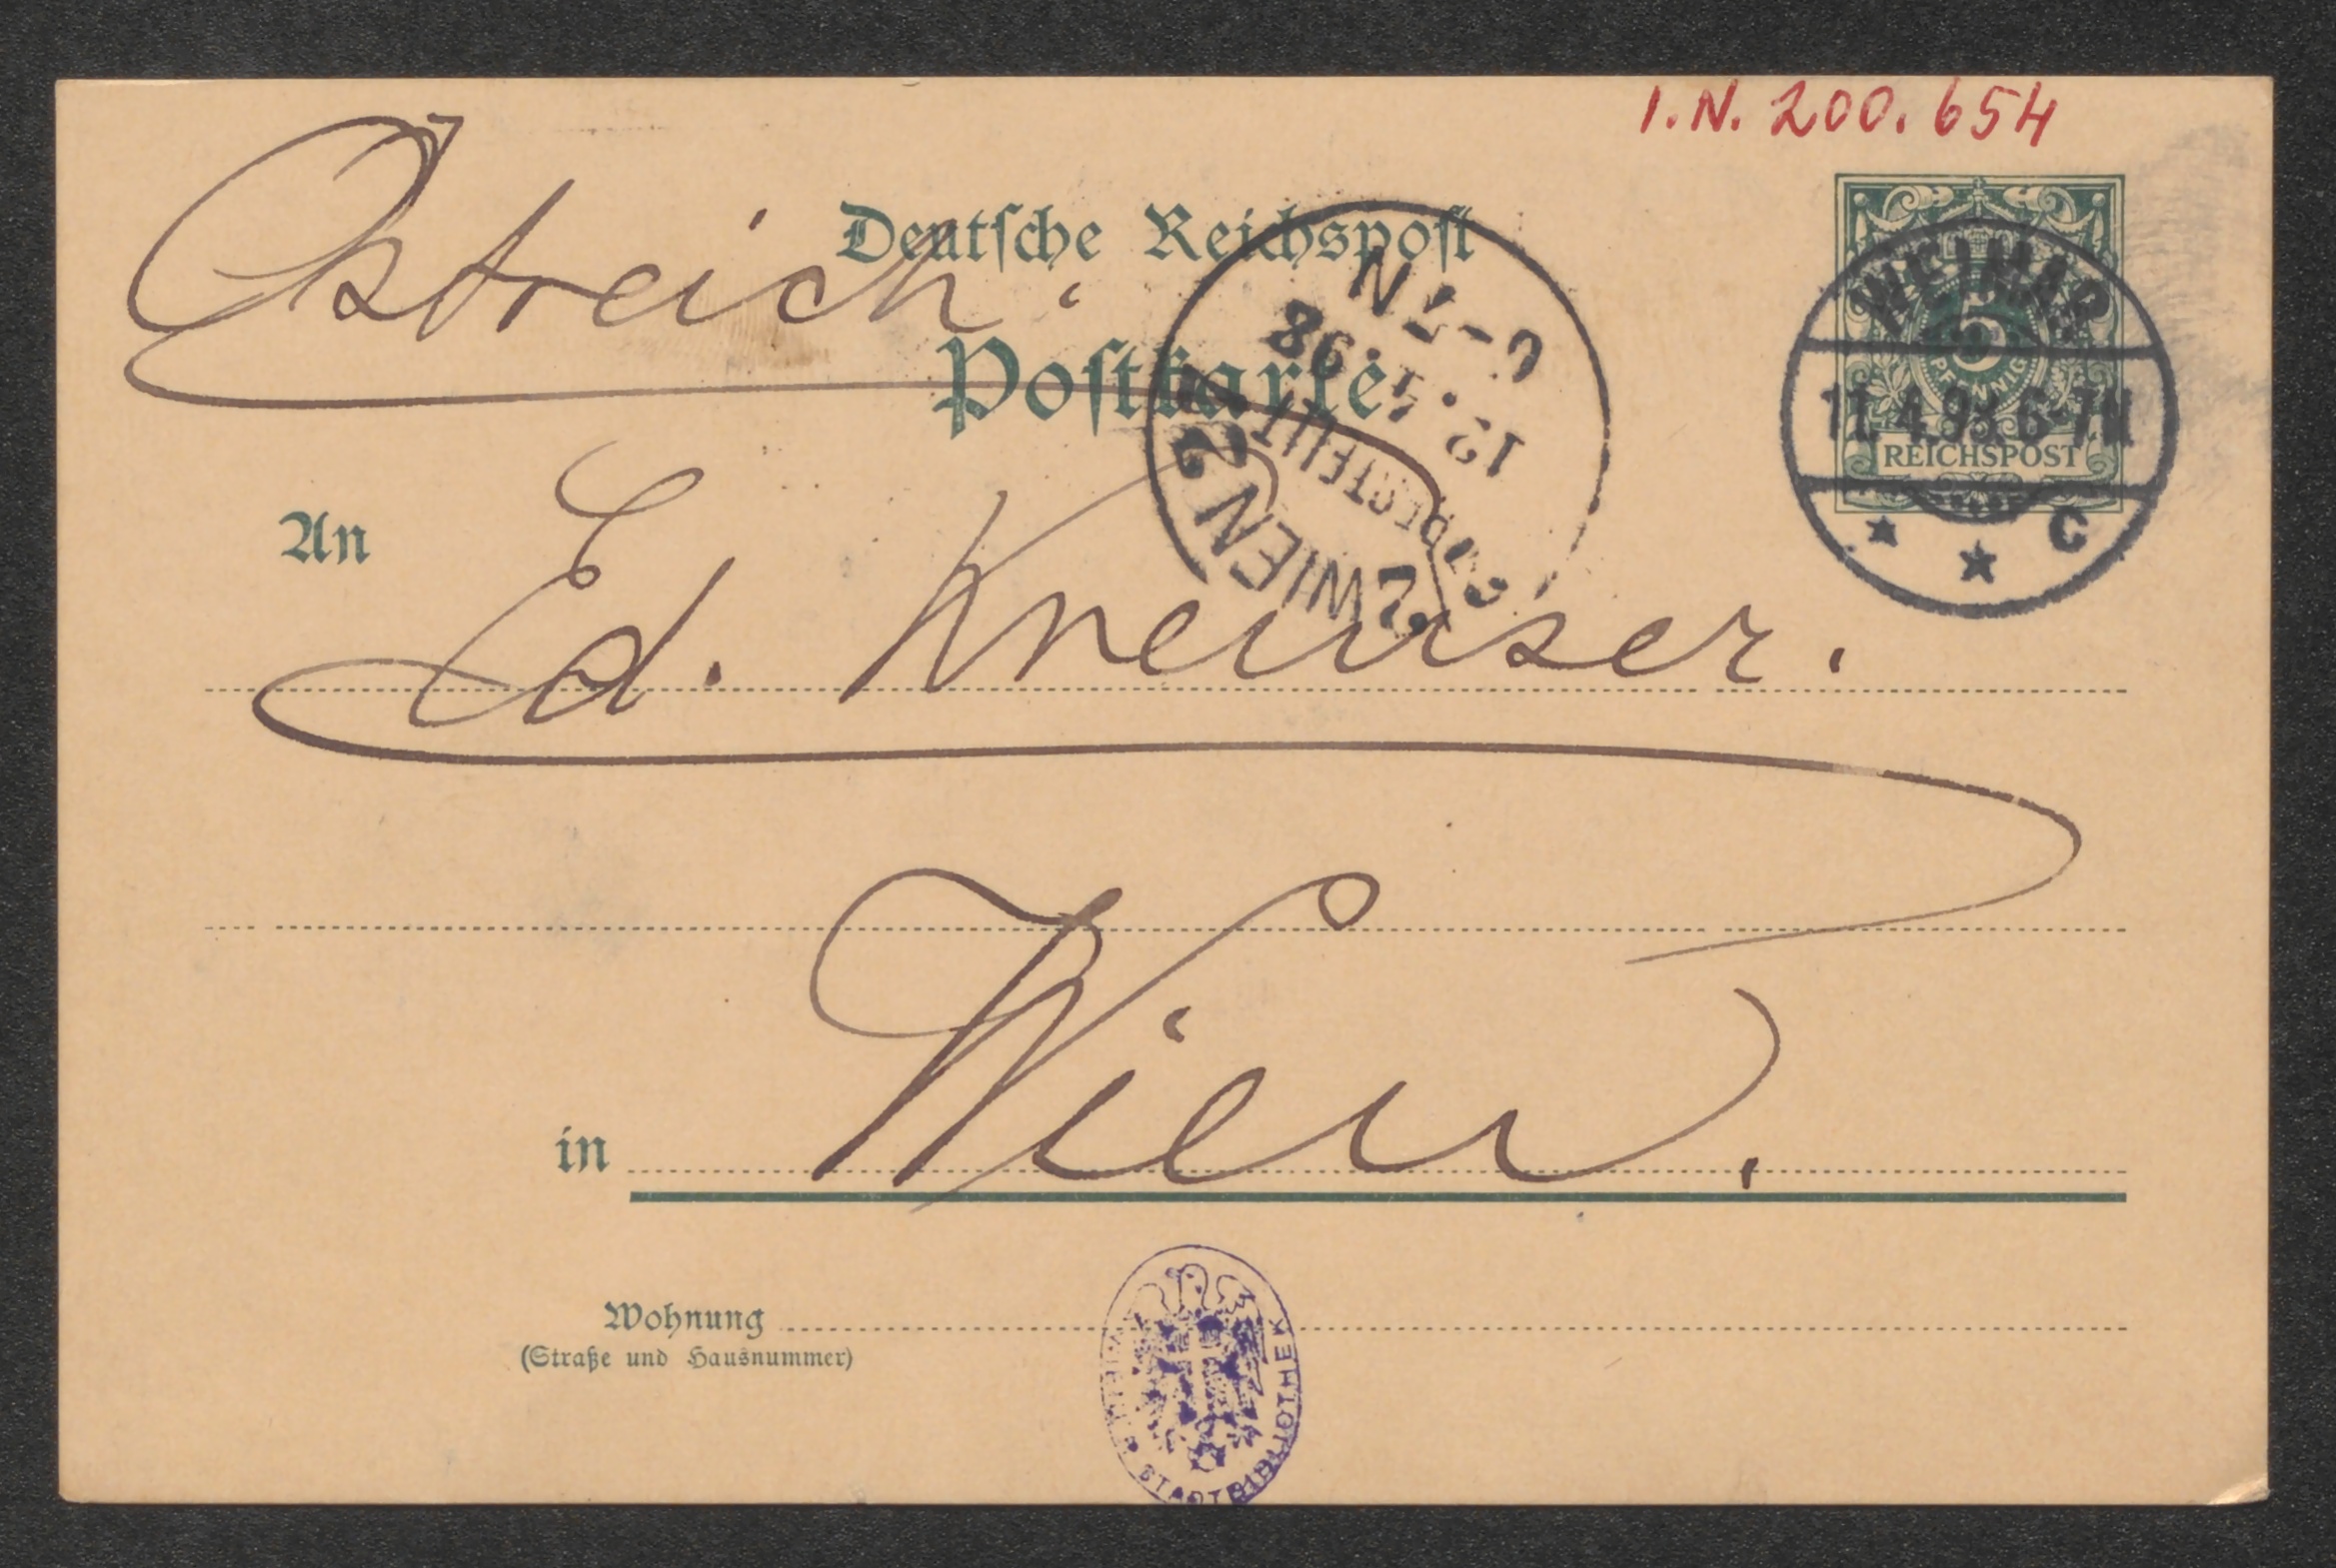 I.N. 200.654
Östreich.
Deutsche Reichspost
Postkarte
WEIMAR
5
PFENNIG
11.4.98.6-7N
REICHSPOST
C
6-7N
12.4.98
BESTELLT
2 WIEN 2
An
Ed. Kremser.
in Wien.
Wohnung
(Straße und Hausnummer)
WIENER STADTBIBLIOTHEK